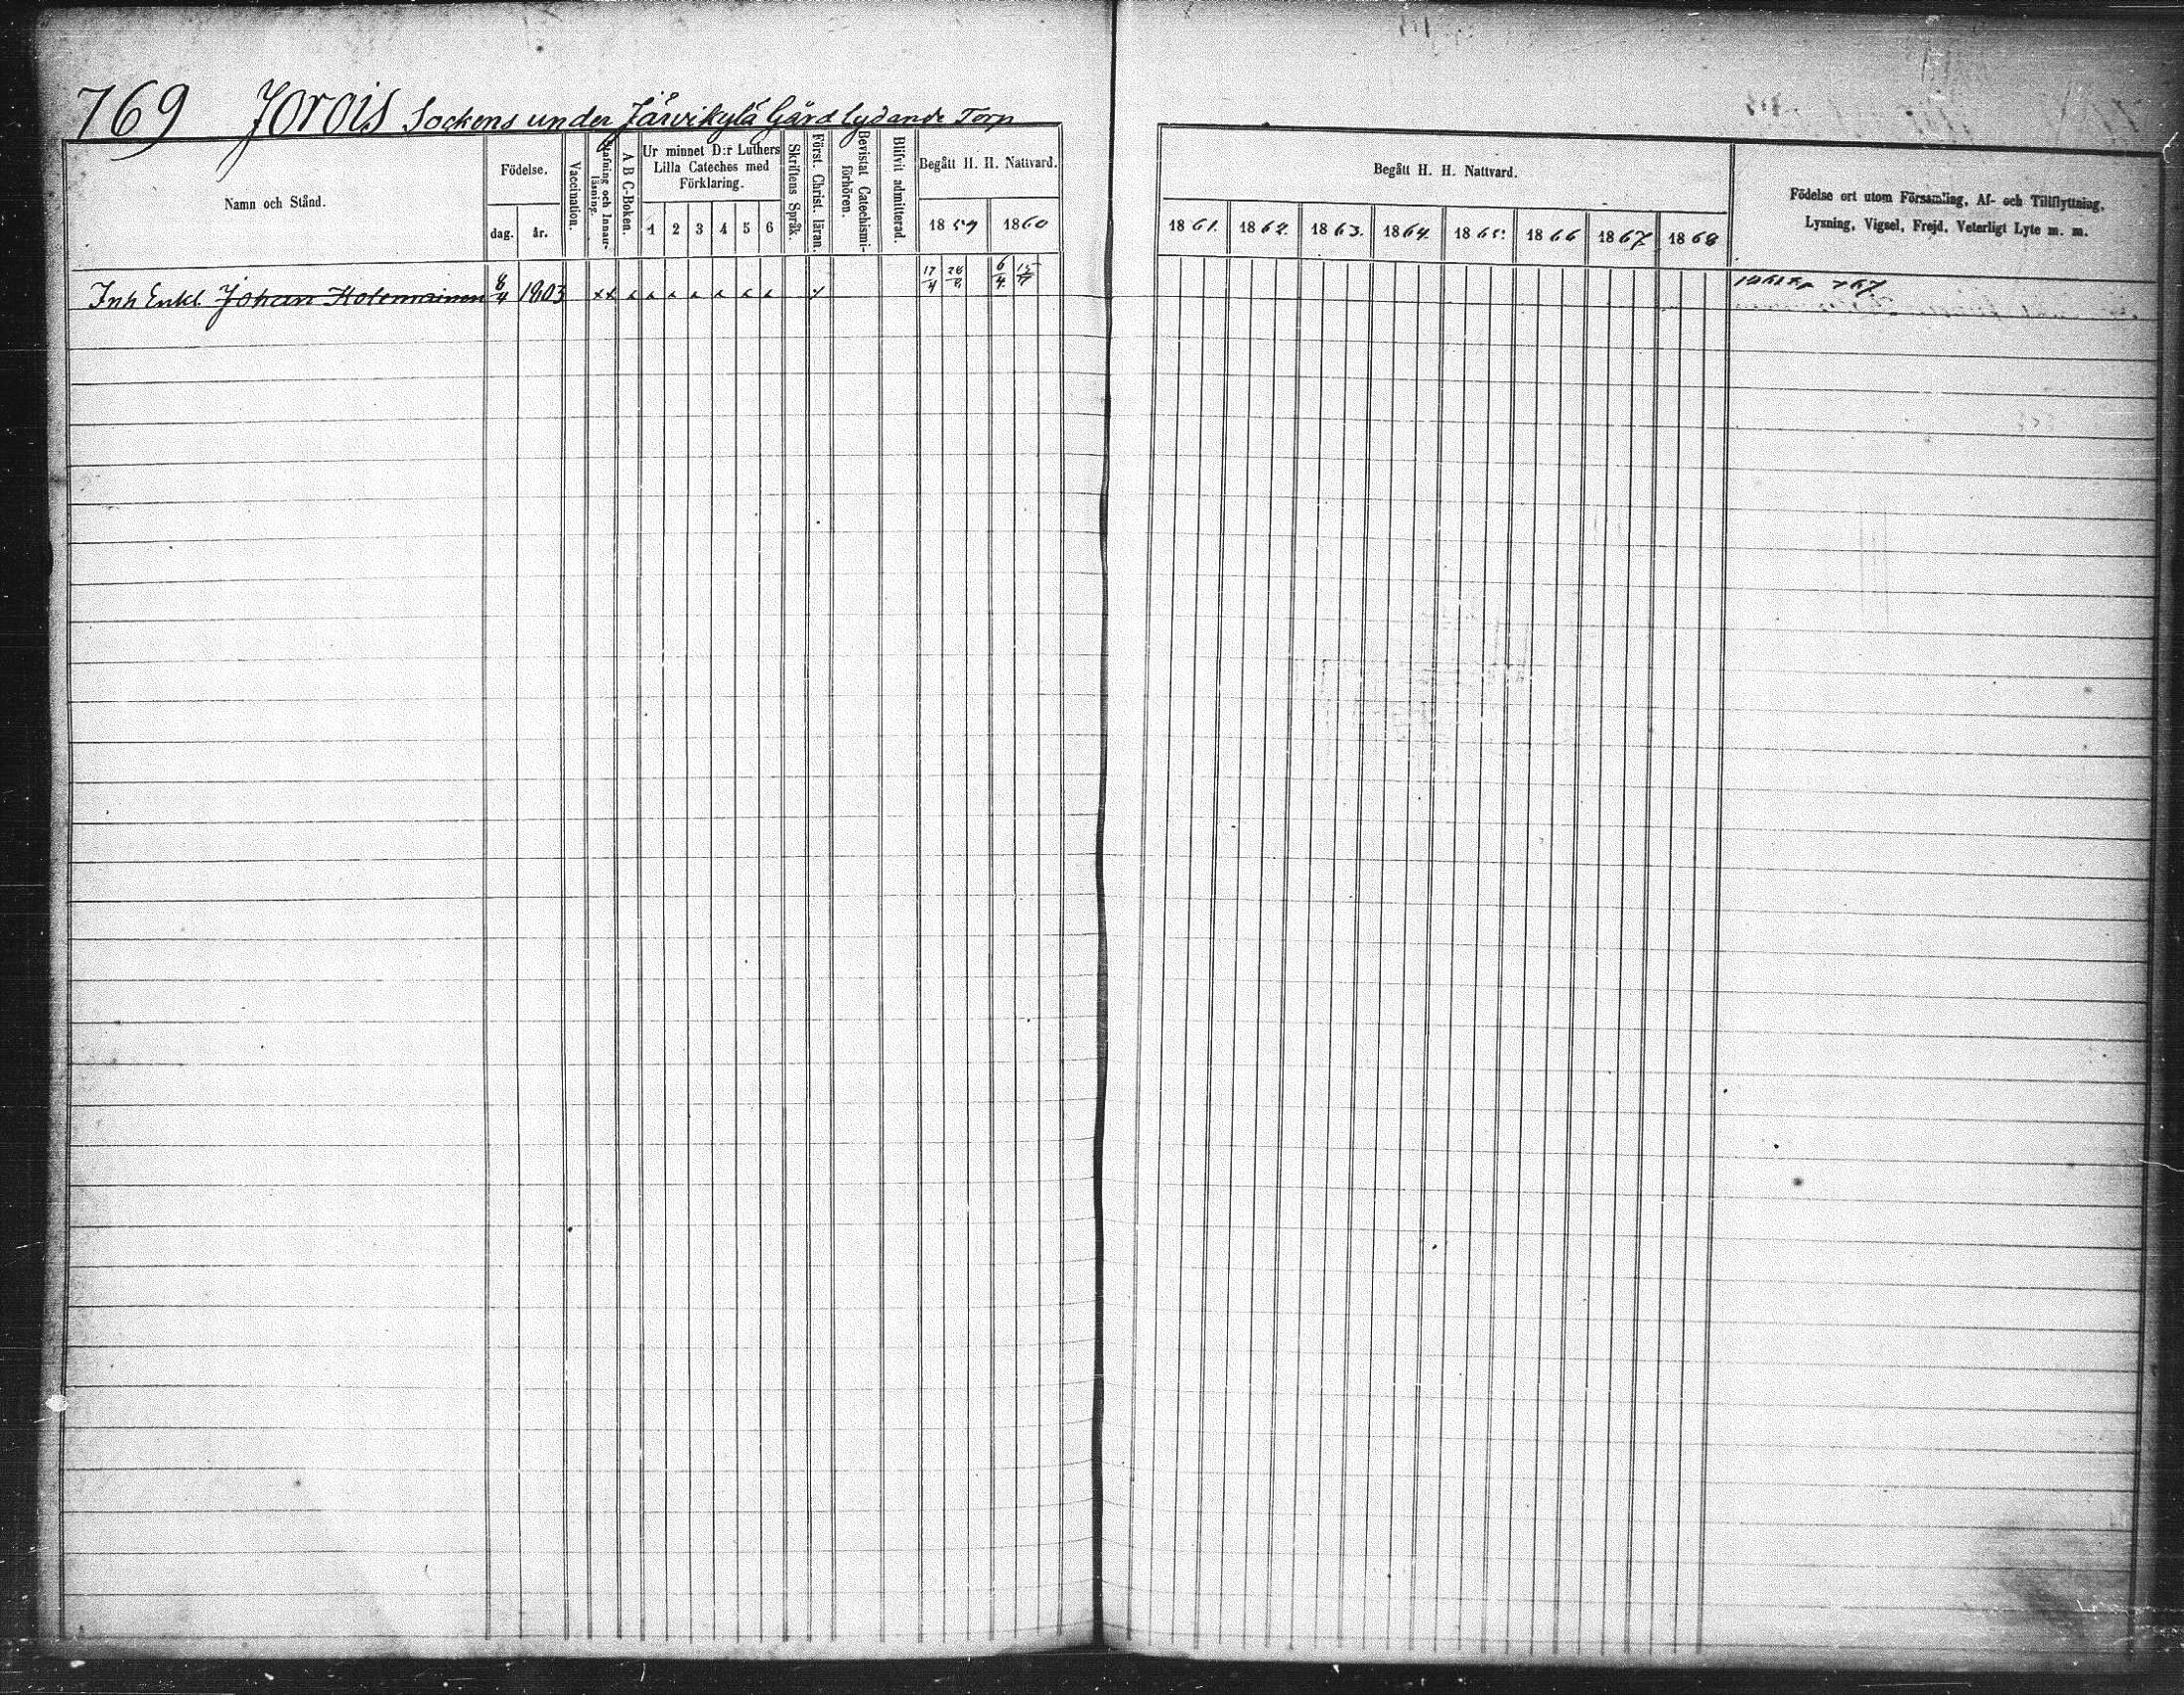 769 Jorois Sockens under Järvikylä Gård lydande Torp
Namn och Stånd.
Födelse.
dag. år.
Vaccination.
Stafning och Innan-läsning.
A B C-Boken.
Ur minnet D:r Luthers
Lilla Cateches med
Förklaring.
1 2 3 4 5 6
Skriftens Språk.
Först. Christ. läran.
Bevistat Catechismi-förhören.
Blifvit admitterad.
Begått H. H. Nattvard.
1859 1860
Begått H. H. Nattvard.
1861. 1862. 1863. 1864. 1865. 1866 1867. 1868
Födelse ort utom Församling, Af- och Tillflyttning,
Lysning, Vigsel, Frejd, Veterligt Lyte m. m.
Inh Enkl. Johan Kolemainen 8/4 1803 17/4 6/4 767